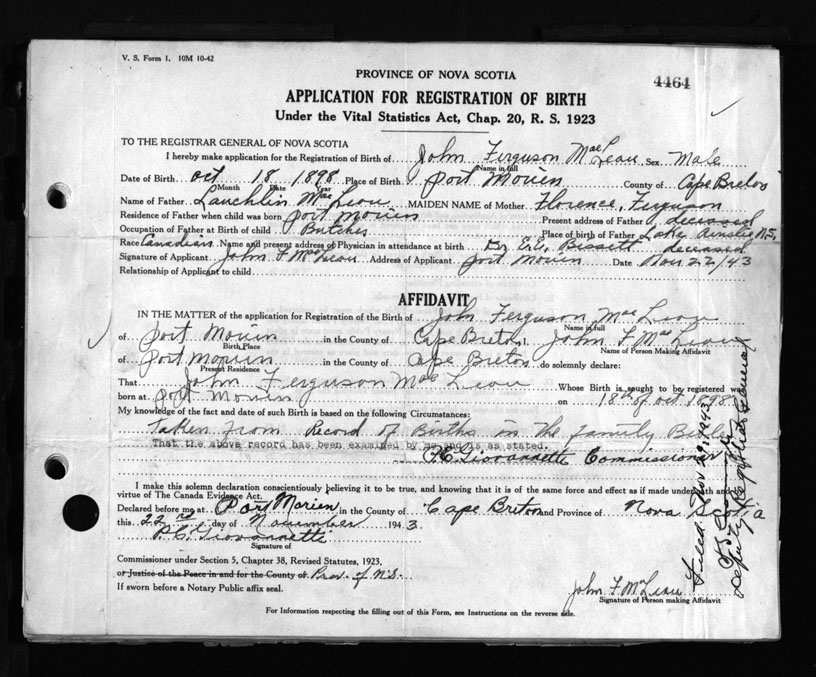 V. S. Form 1. 10M 10-42
PROVINCE OF NOVA SCOTIA
4464
APPLICATION FOR REGISTRATION OF BIRTH
Under the Vital Statistics Act, Chap. 20, R. S. 1923
TO THE REGISTRAR GENERAL OF NOVA SCOTIA
I hereby make application for the Registration of Birth of John Ferguson MacLean Sex Male
Name in full
Date of Birth Oct 18 1898 Place of Birth Port Morien County of Cape Breton
Month Date Year
Name of Father Lauchlin MacLean MAIDEN NAME of Mother Florence Ferguson
Residence of Father when child was born Port Morien Present address of Father deceased
Occupation of Father at Birth of child Butcher Place of birth of Father Lake Ainslie N.S.
Race Canadian Name and present address of Physician in attendance at birth Dr Bissett deceased
Signature of Applicant John F MacLean Address of Applicant Port Morien Date Nov 22/43
Relationship of Applicant to child
AFFIDAVIT
IN THE MATTER of the application for Registration of the Birth of John Ferguson MacLean
Name in full
of Port Morien in the County of Cape Breton I, John F MacLean
Birth Place Name of Person Making Affidavit
of Port Morien in the County of Cape Breton do solemnly declare:
Present Residence
That John Ferguson MacLean Whose Birth is sought to be registered was
born at Port Morien on 18th of Oct 1898
My knowledge of the fact and date of such Birth is based on the following Circumstances:
Taken from Record of Births in the family Bible
That the above record has been examined by me and is as stated.
P.C. Giovannetti Commissioner
I make this solemn declaration conscientiously believing it to be true, and knowing that it is of the same force and effect as if made under oath and by
virtue of The Canada Evidence Act.
Declared before me at Port Morien in the County of Cape Breton and Province of Nova Scotia
this 22nd day of November 1943
P.C. Giovannetti
Signature of
Commissioner under Section 5, Chapter 38, Revised Statutes, 1923,
or Justice of the Peace in and for the County of Prov. of N.S.
If sworn before a Notary Public affix seal.
John F McLean
Signature of Person making Affidavit
For Information respecting the filling out of this Form, see Instructions on the reverse side.
Filed. Nov 29, 1943
Deputy Registrar General